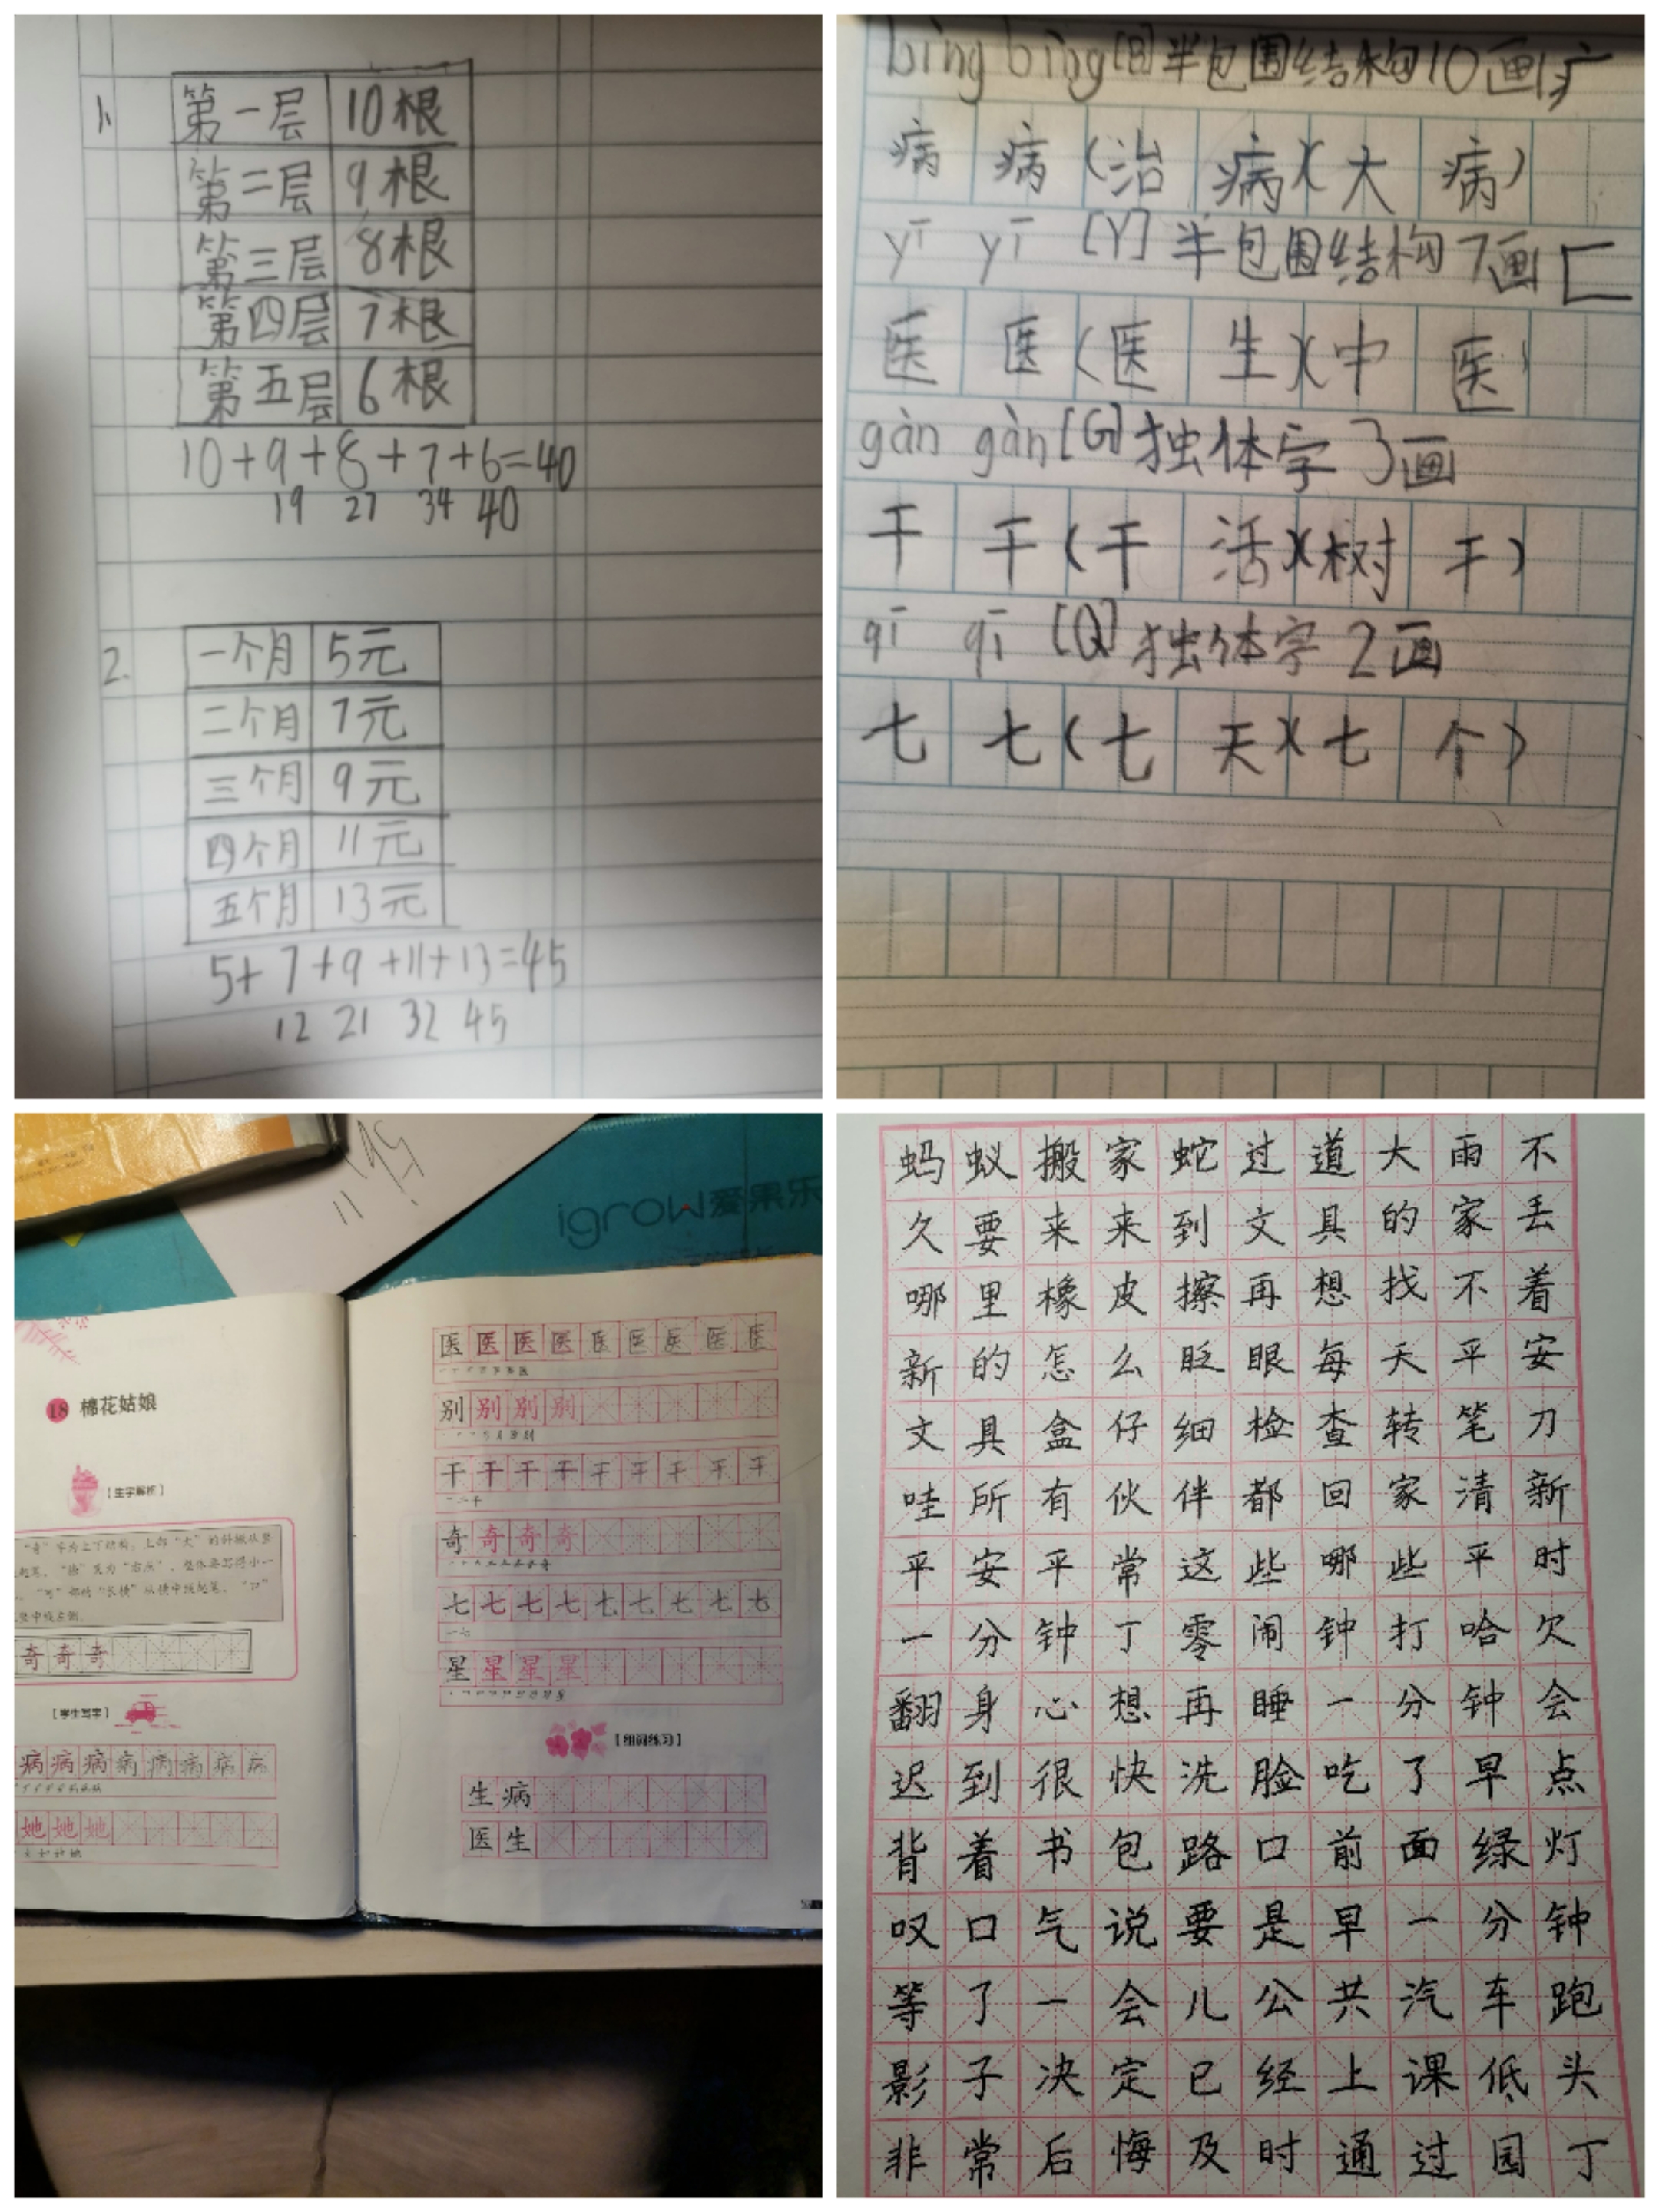 1.
第一层 10根
第二层 9根
第三层 8根
第四层 7根
第五层 6根
10+9+8+7+6=40
19 27 34 40
2.
一个月 5元
二个月 7元
三个月 9元
四个月 11元
五个月 13元
5+7+9+11+13=45
12 21 32 45
bìng bìng [B] 半包围结构 10画 疒
病 病 (治病)(大病)
yī yī [Y] 半包围结构 7画 匚
医 医 (医生)(中医)
gàn gàn [G] 独体字 3画
干 干 (干活)(树干)
qī qī [Q] 独体字 2画
七 七 (七天)(七个)
igrow爱果乐
18 棉花姑娘
【生字解析】
“奇”字为上下结构,上部“大”的斜撇从竖
起笔,“捺”变为“右点”,整体要写得小一
“可”部的“长横”从横中线起笔,“口”
竖中线左侧。
奇 奇 奇
【学生写字】
病 病 病 病 病 病 病 病
她 她 她
医 医 医 医 医 医 医 医 医
别 别 别 别
干 干 干 干 干 干 干 干 干
奇 奇 奇 奇
七 七 七 七 七 七 七 七 七
星 星 星 星
【组词练习】
生病
医生
蚂蚁搬家蛇过道大雨不
久要来来到文具的家丢
哪里橡皮擦再想找不着
新的怎么眨眼每天平安
文具盒仔细检查转笔刀
哇所有伙伴都回家清新
平安平常这些哪些平时
一分钟丁零闹钟打哈欠
翻身心想再睡一分钟会
迟到很快洗脸吃了早点
背着书包路口前面绿灯
叹口气说要是早一分钟
等了一会儿公共汽车跑
影子决定已经上课低头
非常后悔及时通过园丁